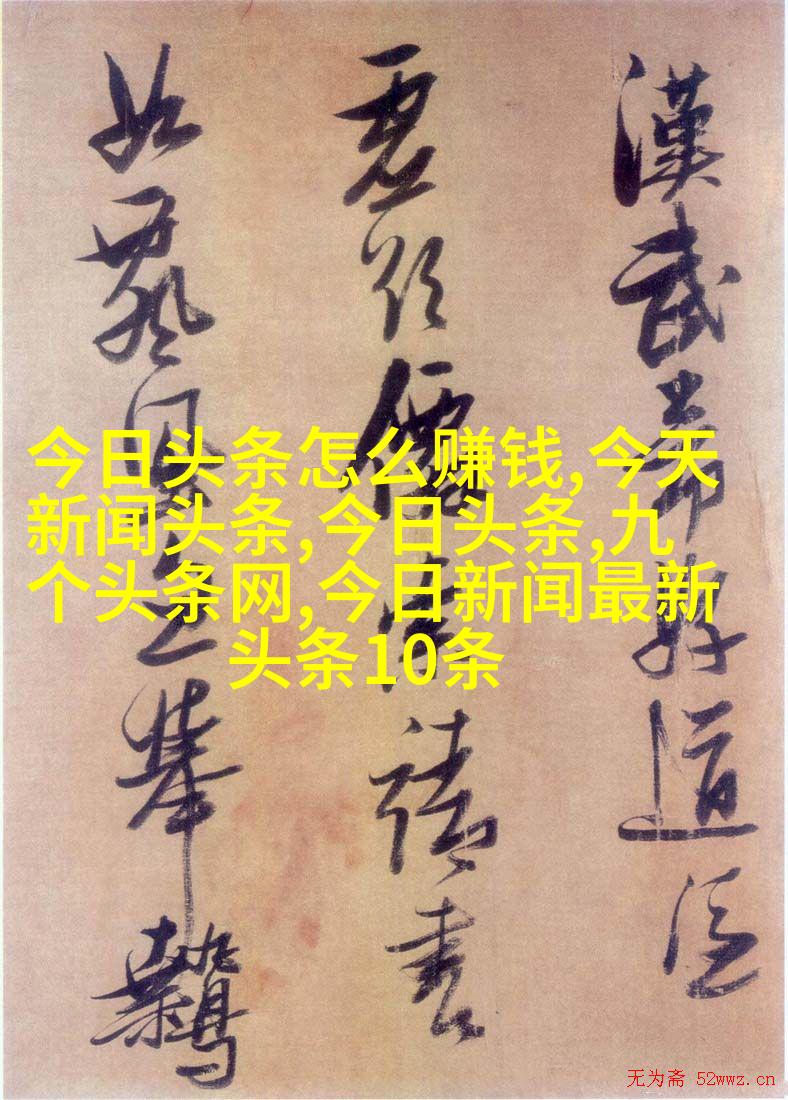 漢武帝好道
價請書
如風之舉
今日头条怎么赚钱,今天
新闻头条,今日头条,九
个头条网,今日新闻最新
头条10条
无为斋 52wwz.cn